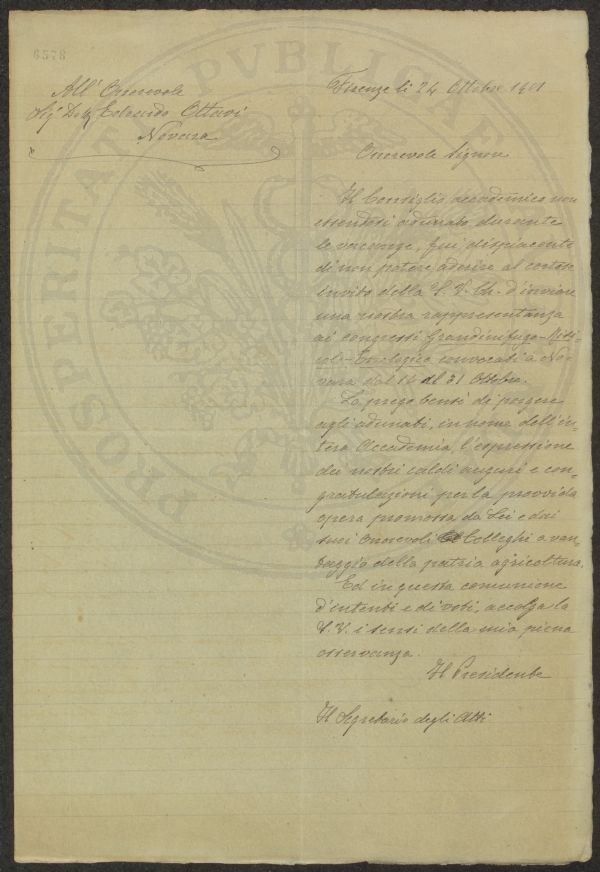 6578
Firenze li 24 Ottobre 1901
All' Onorevole
Sig. Dott. Edoardo Ottavi
Novara
Onorevole Signore
Il Consiglio accademico non
essendosi adunato durante
le vacanze, fui dispiacente
di non potere aderire al cortese
invito della S. V. Ch. d'inviare
una nostra rappresentanza
ai congressi Grandinifugo-Viti-
colo-Enologico convocati a No-
vara dal 14 al 31 Ottobre.
La prego bensì di porgere
agli adunati, in nome dell'in-
tera Accademia, l'espressione
dei nostri caldi auguri e con-
gratulazioni per la provvida
opera promossa da Lei e dai
suoi onorevoli Colleghi a van-
taggio della patria agricoltura.
Ed in questa comunione
d'intenti e di voti, accolga la
S. V. i sensi della mia piena
osservanza.
Il Presidente
Il Segretario degli Atti
PROSPERITATI PVBLICAE